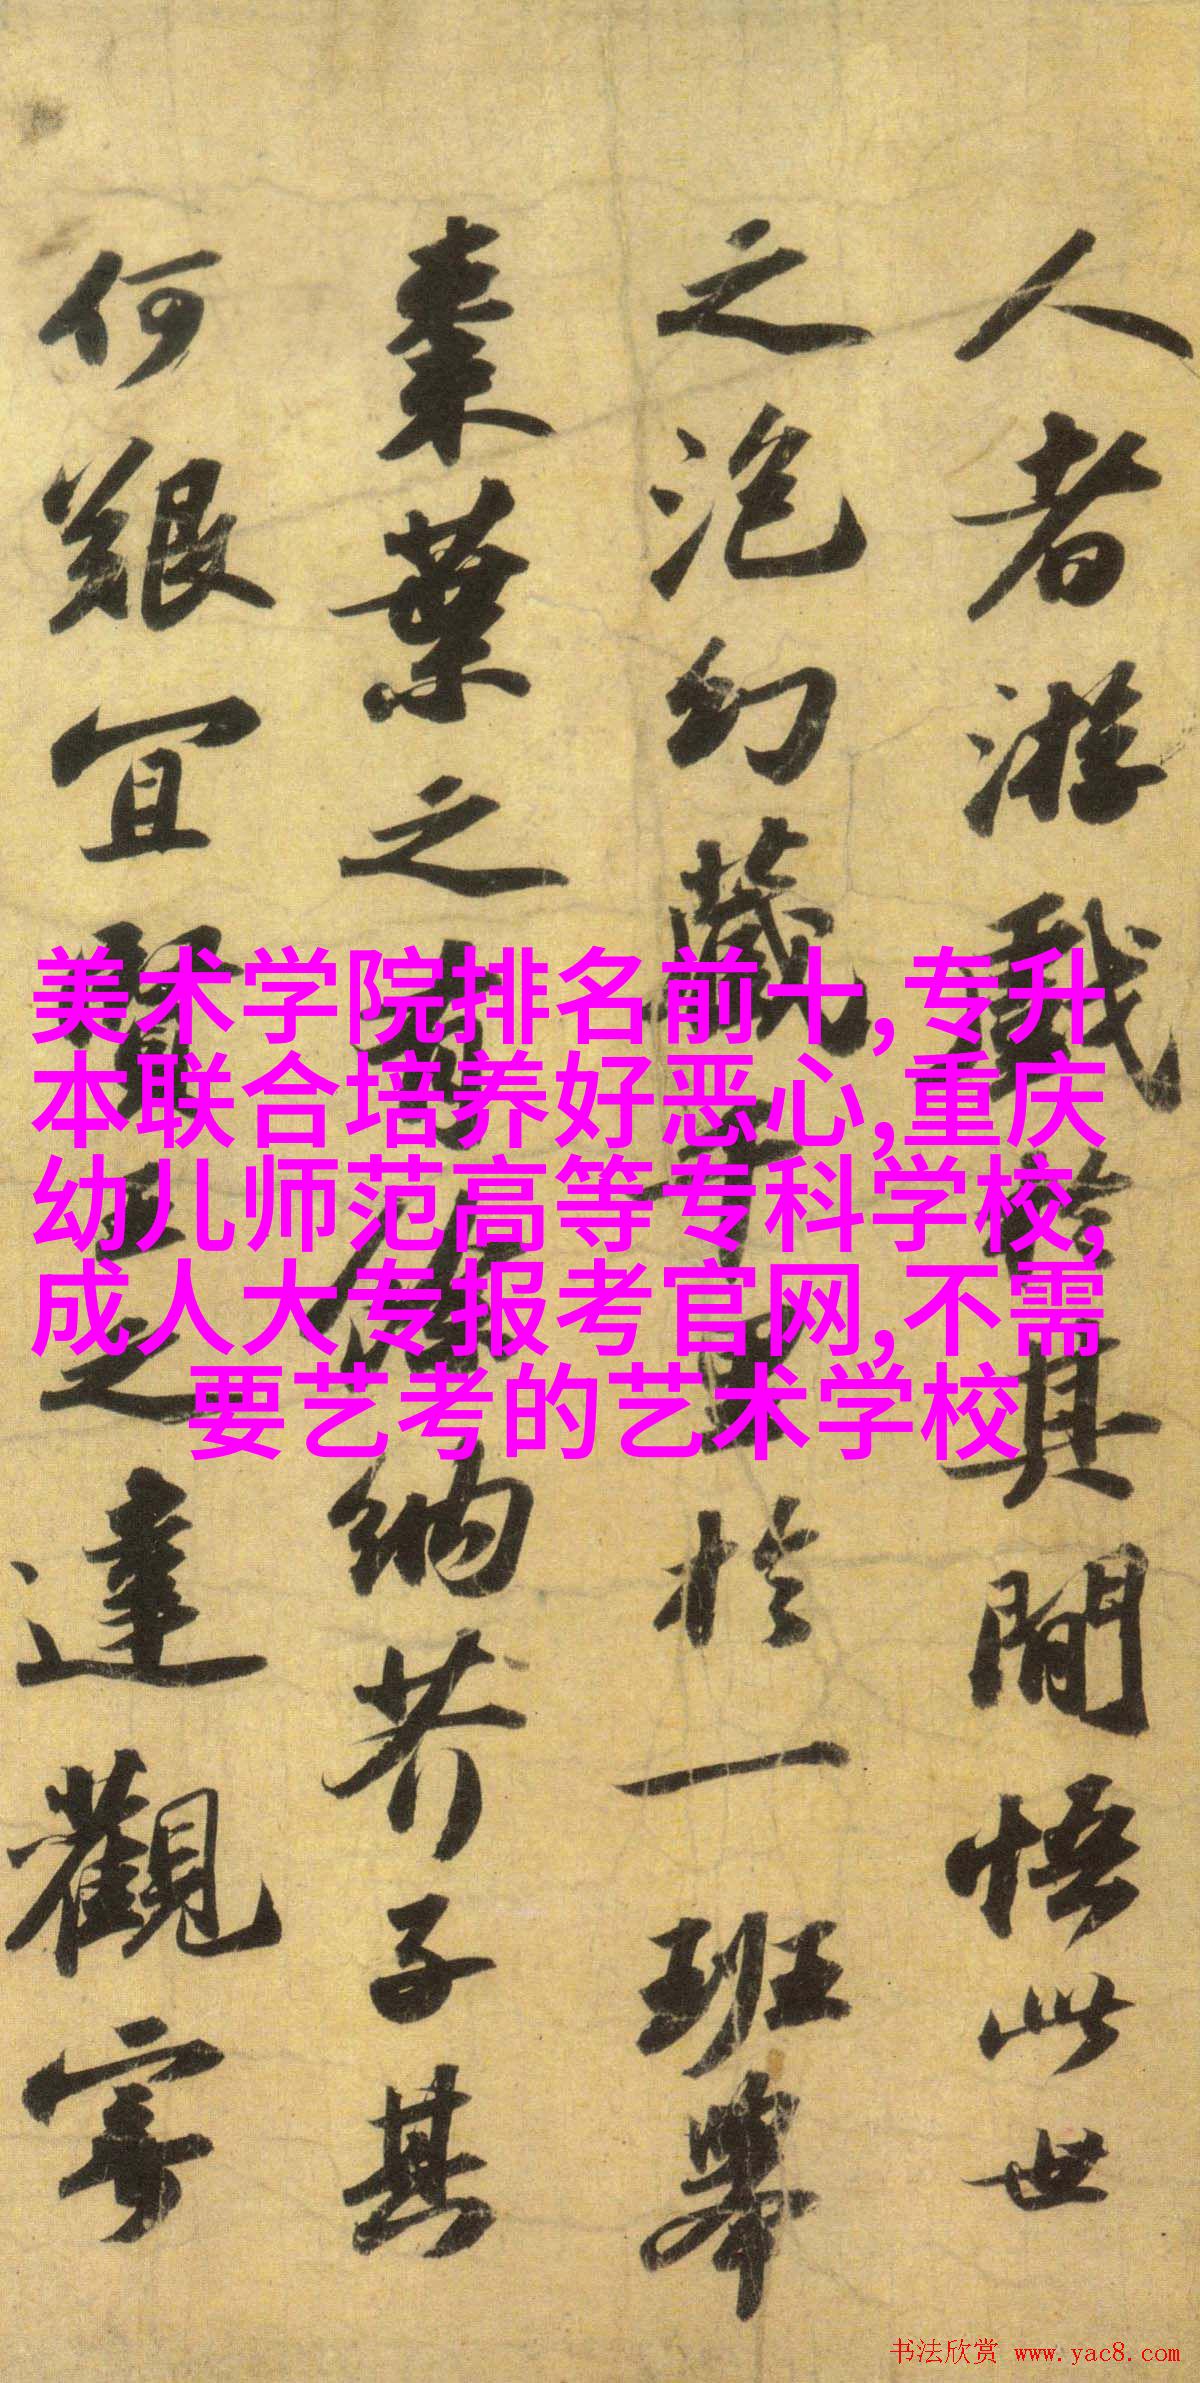 人者游戲於其間悟此世
之泡幻藏千里於一班舉
棗葉之有餘納芥子其
何艱宜賢王之達觀寄
美术学院排名前十,专升
本联合培养好恶心,重庆
幼儿师范高等专科学校,
成人大专报考官网,不需
要艺考的艺术学校
书法欣赏 www.yac8.com